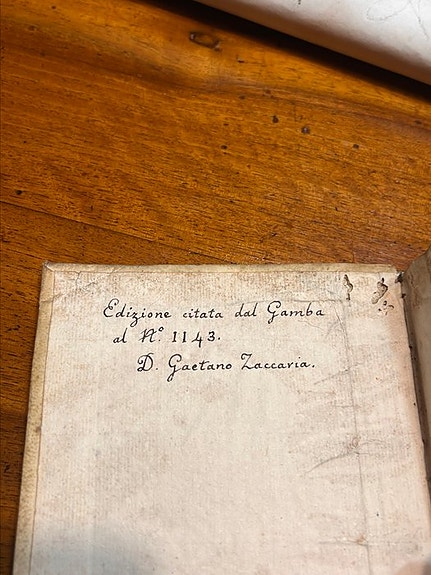 Edizione citata dal Gamba
al N.º 1143.
D. Gaetano Zaccaria.